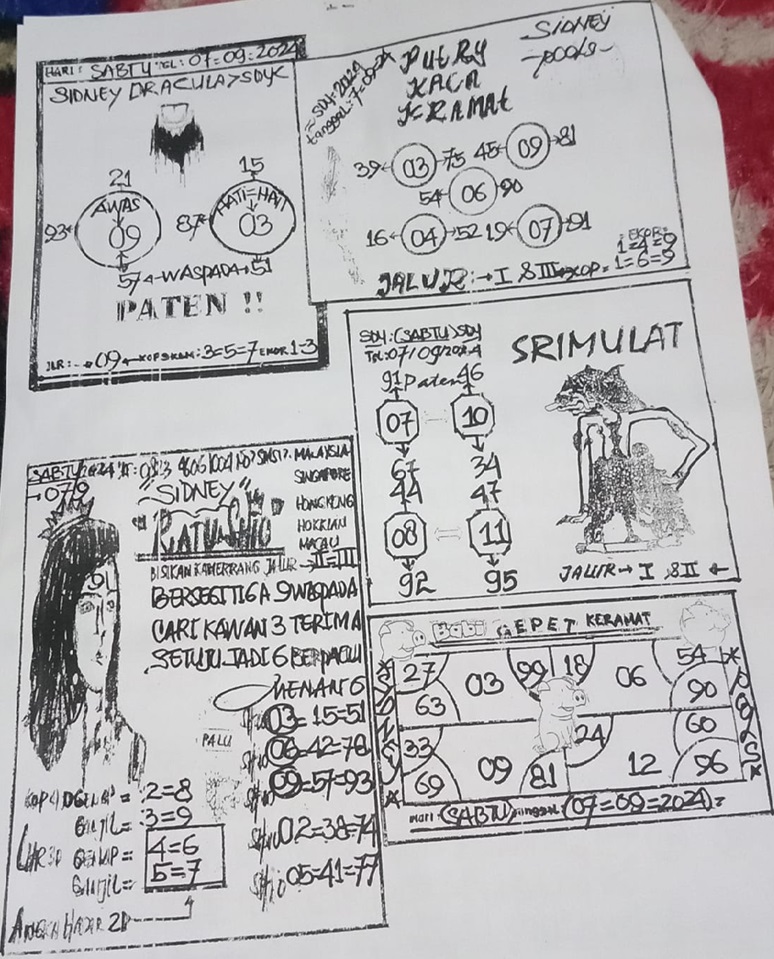 HARI: SABTU TGL: 07=09=2024
SIDNEY DRACULA>SDYC
21
15
AWAS
HATI=HATI
93
09
87
03
57 WASPADA 51
PATEN !!
JLR: 09 KOP 3=5=7 EKOR 1=3
SDY=2024
tanggal: 7-09-24
PUTRY
KACA
KRAMAT
SiDNEY
-pools-
39 03 75 45 09 81
54 06 90
16 04 52 19 07 91
JALUR: I & III KOP = 1=6=9
EKOR=
1=4=9
SDY:(SABTU)SDY
TGL:07/09/2024
SRIMULAT
91 Paten 46
07 10
67 34
44 47
08 11
92 95
JALUR I & II
SABTU 2024
07/9
MALAYSIA
SINGAPORE
HONGKONG
HOKKIAN
MACAU
"SIDNEY"
RATU SHIO
BISIKAN JALUR II=III
91
BERSEGITIGA 9 WASPADA
CARI KAWAN 3 TERIMA
SETUJU JADI 6 BERPACU
MENANG 6
PALU
Shio 03=15=51
Shio 06=42=78
Shio 09=57=93
Shio 02=38=74
Shio 05=41=77
KOP 4D GENAP = 2=8
GANJIL = 3=9
GENAP = 4=6
GANJIL = 5=7
ANGKA HADIR 2D 4
Babi GEPET KERAMAT
SYDNEY
POOLS
27 03 99 18 06 54
63 90
33 24 60
69 09 81 12 96
Hari:(SABTU) tanggal:(07=09=2024)=